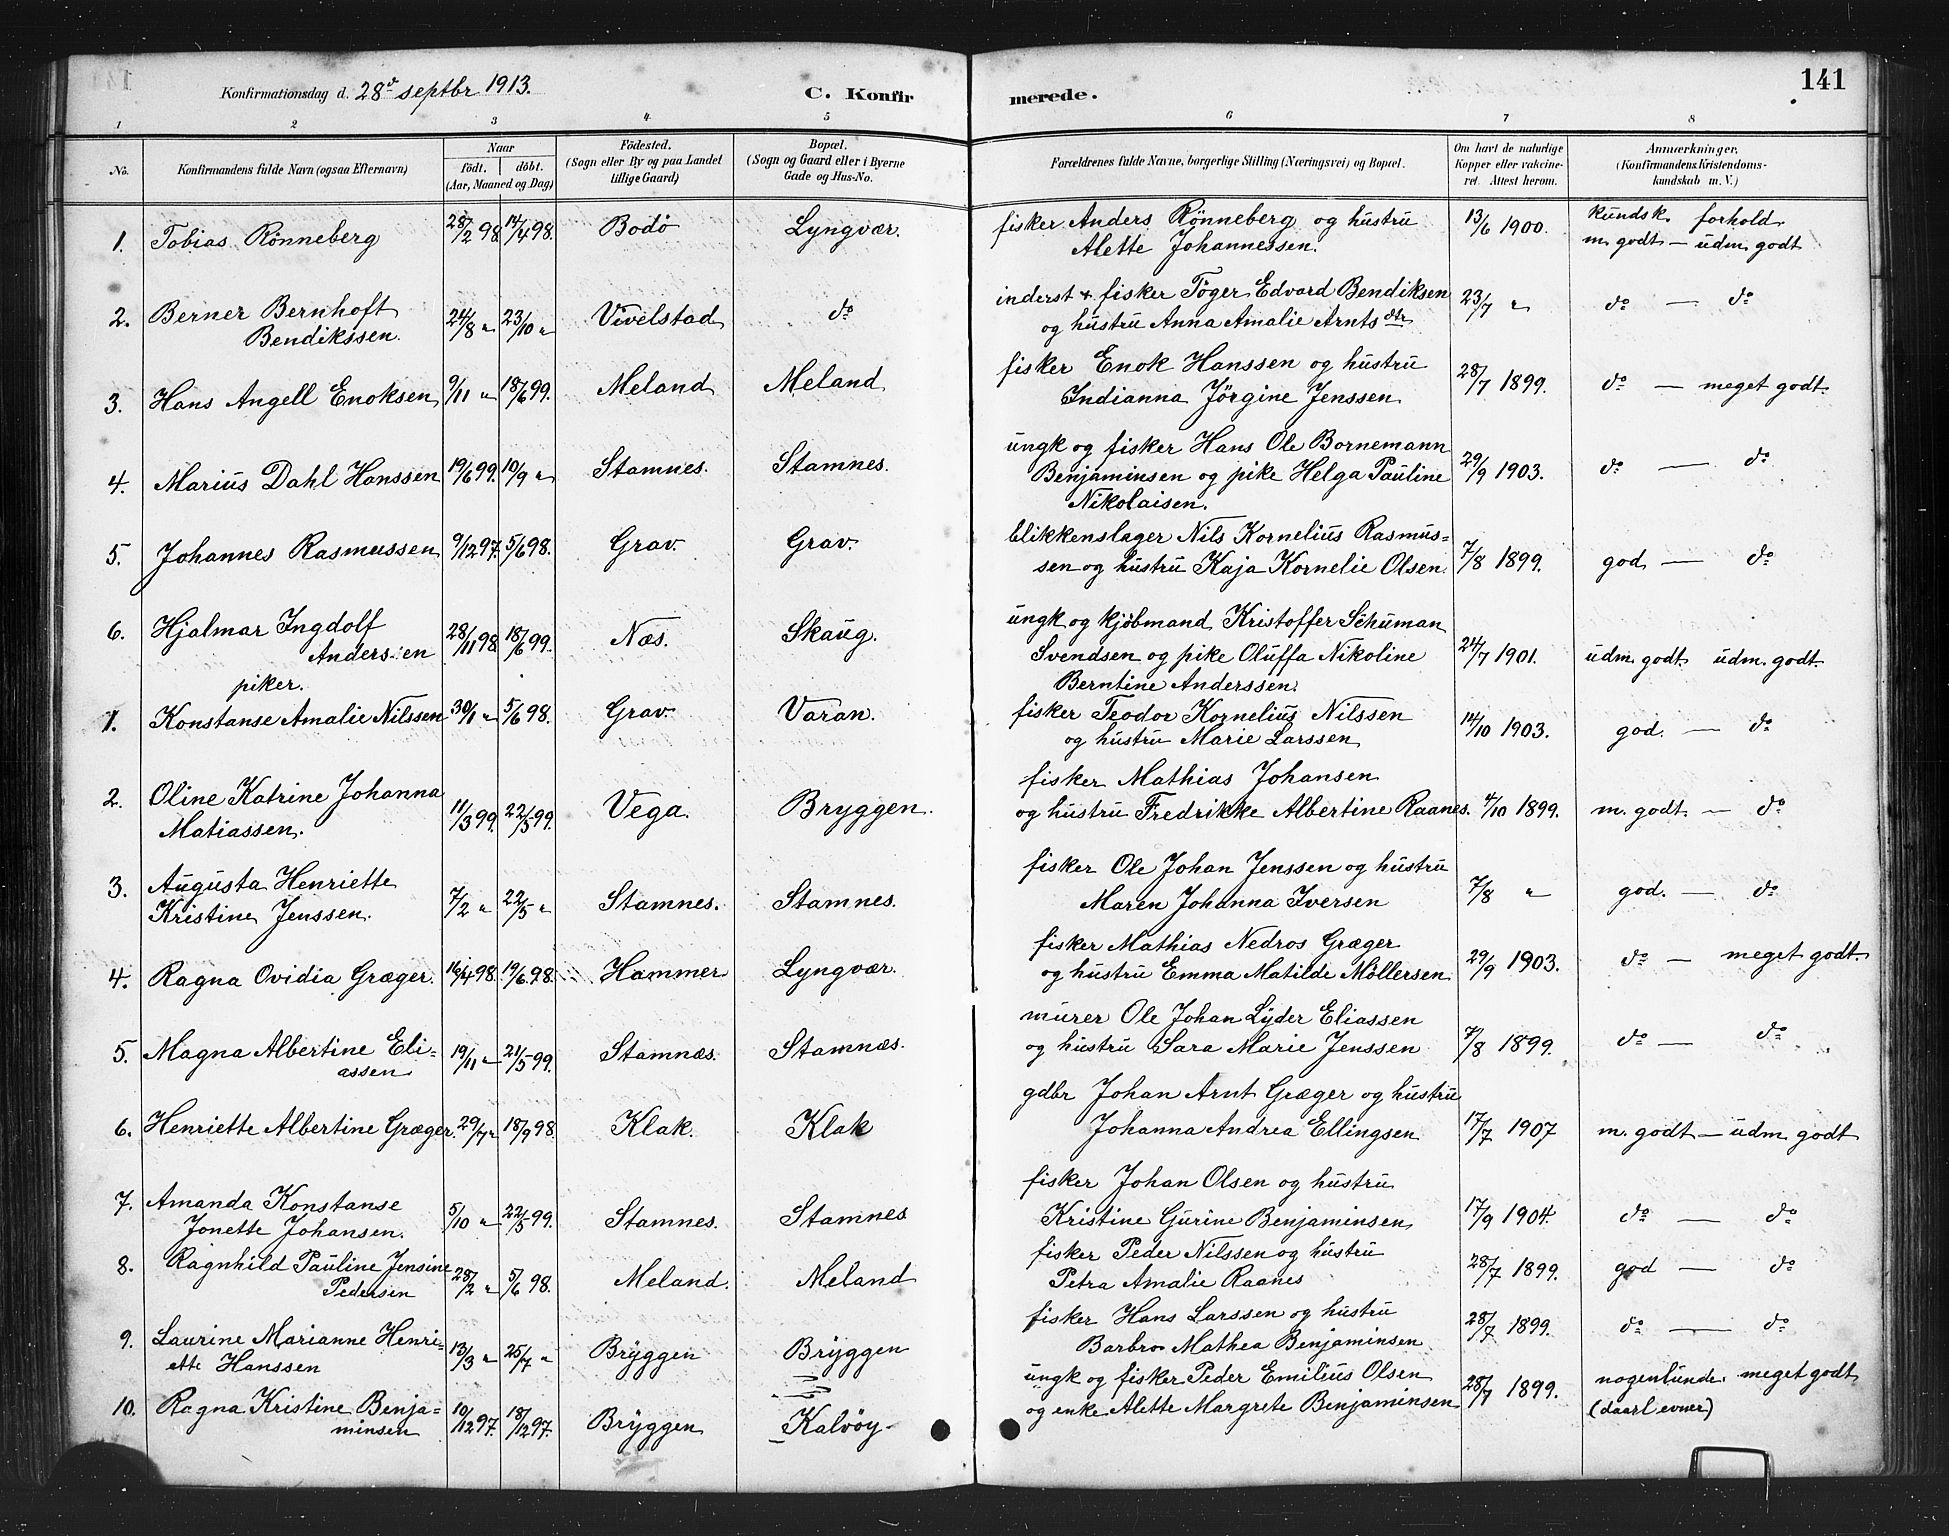 Konfirmationsdag d. 28d septbr 1913. C. Konfirmerede. 141
1 2 3 4 5 6 7 8
No. Konfirmandens fulde Navn (ogsaa Efternavn) Naar födt. döbt. (Aar, Maaned og Dag) Födested. (Sogn eller By og paa Landet tillige Gaard) Bopæl. (Sogn og Gaard eller i Byerne Gade og Hus-No. Forældrenes fulde Navne, borgerlige Stilling (Næringsvei) og Bopæl. Om havt de naturlige Kopper eller vakcineret. Attest herom. Anmærkninger. (Konfirmandens Kristendomskundskab m. V.)
1. Tobias Rönneberg 28/2 98 14/4 98. Bodö Lyngvær. fisker Anders Rönneberg og hustru 13/6 1900. kundsk. forhold
Alette Johannessen. m. godt — udm. godt
2. Berner Bernhoft 24/8 " 23/10 " Vivelstad do inderst & fisker Töger Edvard Bendiksen 23/7 " do — do
Bendikssen. og hustru Anna Amalie Arntsdtr
3. Hans Angell Enoksen 9/11 " 18/6 99. Meland Meland fisker Enok Hanssen og hustru 28/7 1899. do — meget godt.
Indianna Jörgine Jenssen
4. Marius Dahl Hanssen 19/6 99. 10/9 " Stamnes. Stamnes. ungk og fisker Hans Ole Bornemann 29/9 1903. do — do
Benjaminsen og pike Helga Pauline
Nikolaisen.
5. Johannes Rasmussen 9/12 97. 5/6 98. Grav. Grav. blikkenslager Nils Kornelius Rasmus= 7/8 1899. god — do
sen og hustru Kaja Kornelie Olsen.
6. Hjalmar Ingdolf 28/11 98 18/6 99. Næs. Skaug. ungk og kjöbmand Kristoffer Schuman 24/7 1901. udm. godt udm. godt
Andersen Svendsen og pike Oluffa Nikoline
piker. Berntine Anderssen.
1. Konstanse Amalie Nilssen 30/1 " 5/6 98. Grav. Varan. fisker Teodor Kornelius Nilssen 14/10 1903. god. — do
og hustru Marie Larssen
2. Oline Katrine Johanna 11/3 99. 22/5 99. Vega. Bryggen. fisker Mathias Johansen
Matiassen. og hustru Fredrikke Albertine Raanes. 4/10 1899. m. godt. — do
3. Augusta Henriette 7/2 " 22/5 " Stamnes. Stamnes. fisker Ole Johan Jenssen og hustru 7/8 " god. — do
Kristine Jenssen. Maren Johanna Iversen
4. Ragna Ovidia Græger. 16/4 98. 19/6 98. Hammer Lyngvær. fisker Mathias Nedros Græger 29/9 1903. do — meget godt.
og hustru Emma Matilde Möllersen
5. Magna Albertine Eli= 19/11 " 21/5 99. Stamnæs. Stamnæs. murer Ole Johan Lyder Eliassen 7/8 1899. do — do
assen og hustru Sara Marie Jenssen
6. Henriette Albertine Græger. 29/7 " 18/9 98. Klak. Klak gdbr Johan Arnt Græger og hustru 17/7 1907 m. godt — udm. godt
Johanna Andrea Ellingsen
7. Amanda Konstanse 5/10 " 22/5 99. Stamnes. Stamnes fisker Johan Olsen og hustru 17/9 1904. do — do
Jonette Johansen. Kristine Gurine Benjaminsen
8. Ragnhild Pauline Jensine 28/2 " 5/6 98. Meland. Meland fisker Peder Nilssen og hustru 28/7 1899. god — do
Pedersen Petra Amalie Raanes
9. Laurine Marianne Henri= 13/3 " 25/7 " Bryggen Bryggen fisker Hans Larssen og hustru 28/7 1899. do — do
ette Hanssen Barbro Mathea Benjaminsen
10. Ragna Kristine Benja= 10/12 97. 18/12 97. Bryggen Kalvöy ungk og fisker Peder Emilius Olsen 28/7 1899. nogenlunde meget godt
minsen og enke Alette Margrete Benjaminsen (daarl evner)